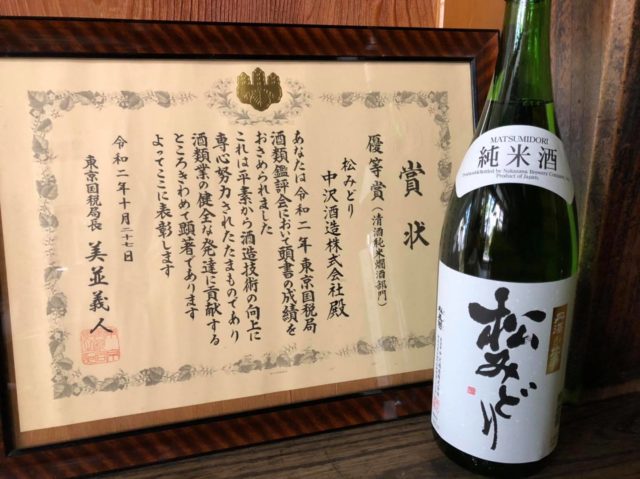 賞状
優等賞(清酒純米燗酒部門)
松みどり
中沢酒造株式会社殿
あなたは令和二年東京国税局
酒類鑑評会において頭書の成績を
おさめられました
これは平素から酒造技術の向上に
専心努力されたたまものであり
酒類業の健全な発達に貢献する
ところきわめて顕著であります
よってここに表彰します
令和二年十月二十七日
東京国税局長 美並義人
MATSUMIDORI
純米酒
Produced&Bottled by Nakazawa Brewery Company, Ltd.
Product of Japan.
松みどり